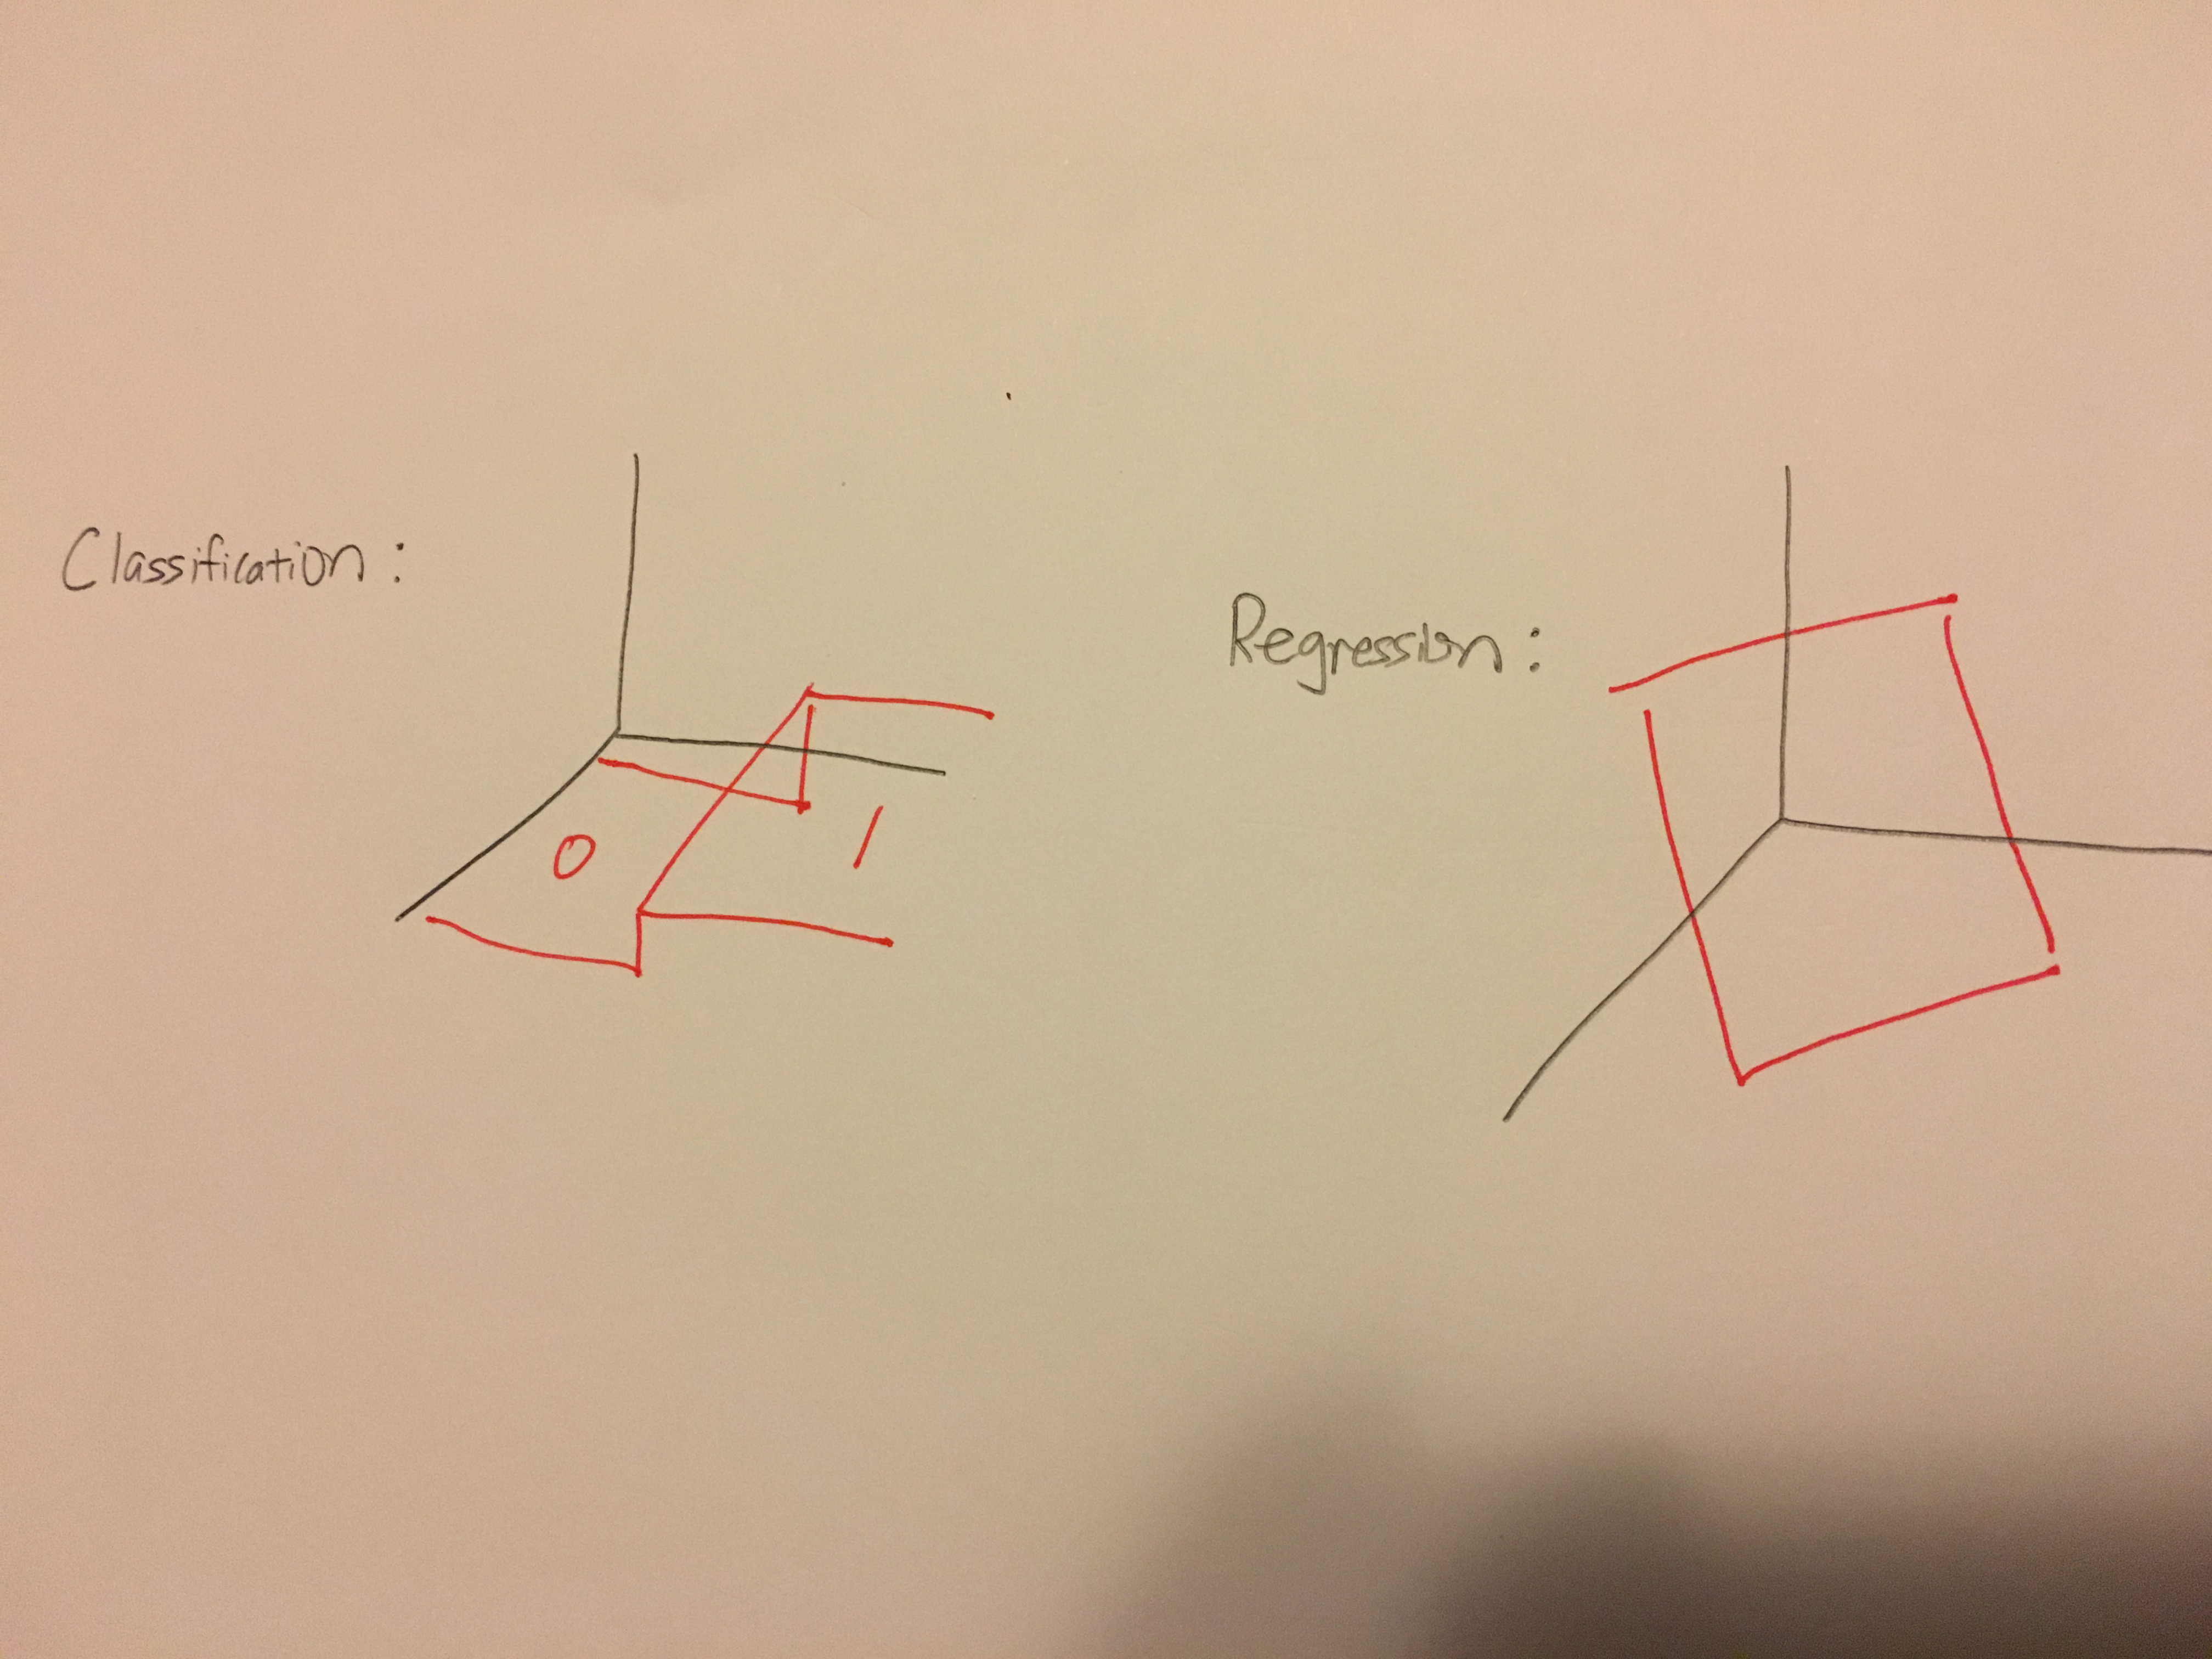 Classification :
Regression :
0
1